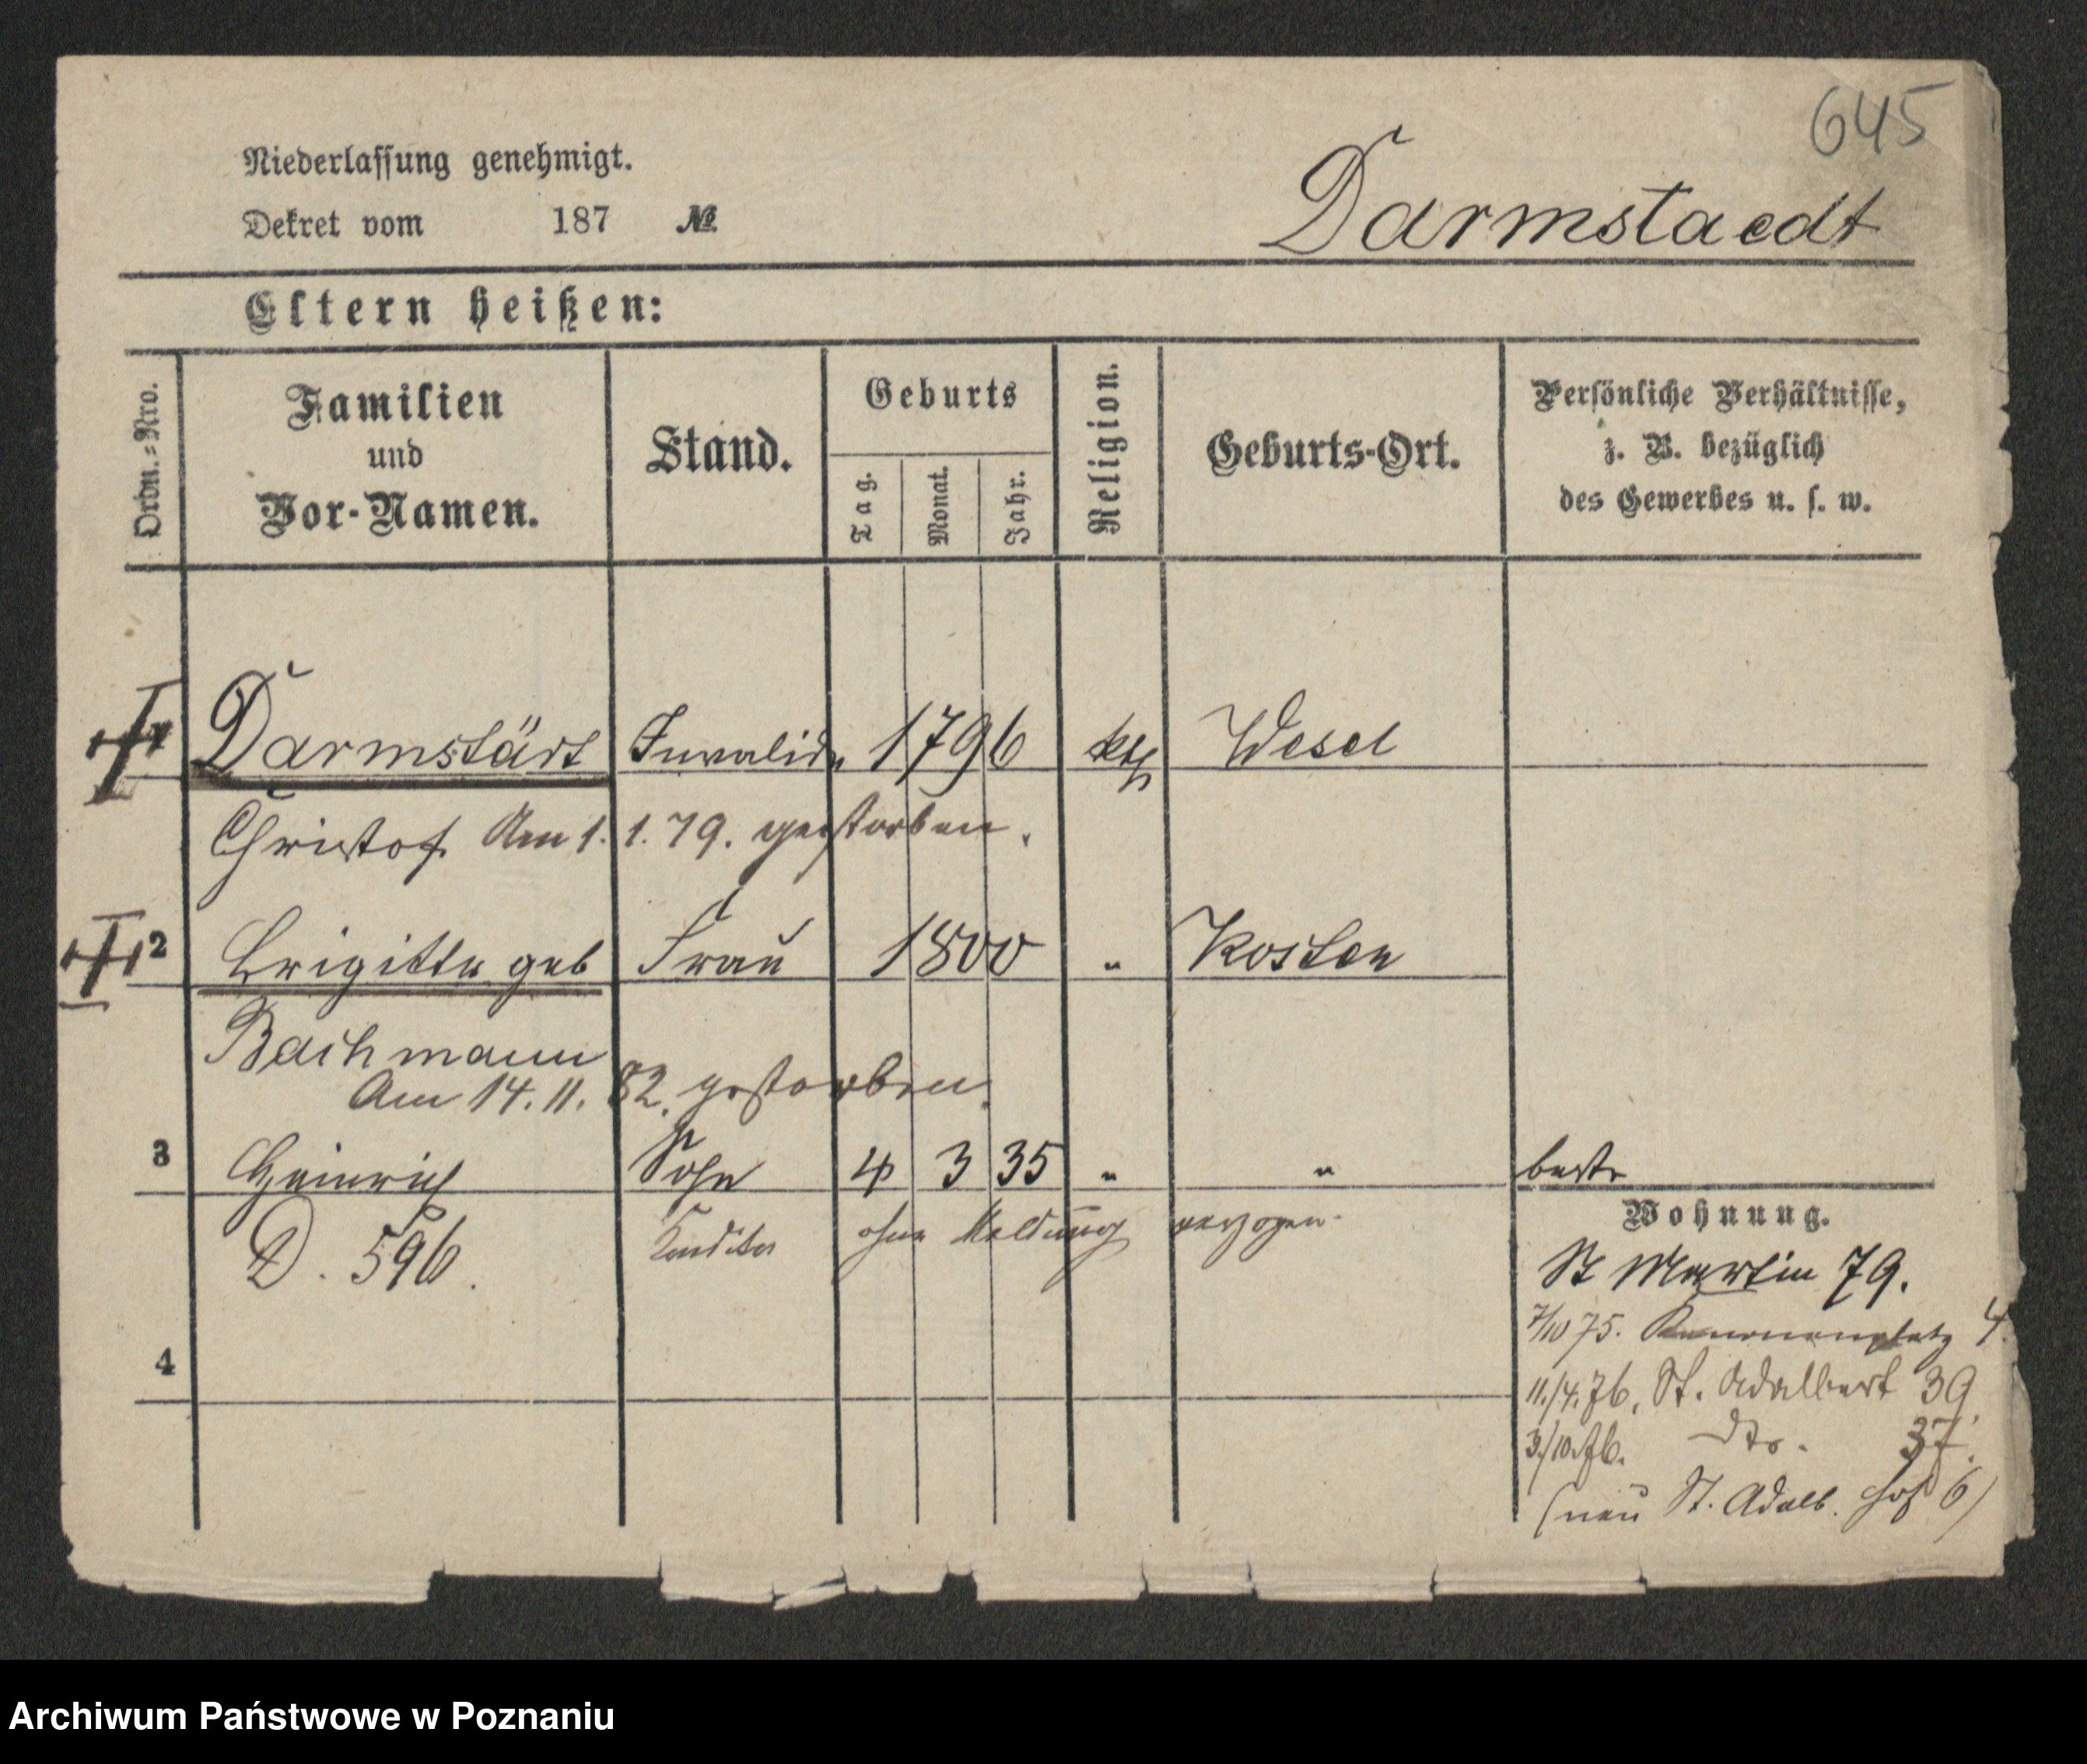 645
Niederlassung genehmigt.
Dekret vom 187 №
Darmstaedt
Eltern heißen:
Ordn.-Nro.
Familien und Vor-Namen.
Stand.
Geburts
Tag.
Monat.
Jahr.
Religion.
Geburts-Ort.
Persönliche Verhältnisse,
z. B. bezüglich
des Gewerbes u. s. w.
Darmstädt Invalide 1796 kth Wesel
Christof Am 1. 1. 79. gestorben.
2 Brigitta geb Frau 1800 " Kosten
Bachmann
Am 14. 11. 82. gestorben.
3 Heinrich Sohn 4 3 35 " "
Wohnung.
D. 596. Konditor ohne Meldung verzogen.
St Martin 79.
7/10 75. Kanonenplatz 4.
4
11./4. 76, St. Adalbert 39.
3/10.76. dto. 37.
(neu St. Adalb. Hof 6)
Archiwum Państwowe w Poznaniu